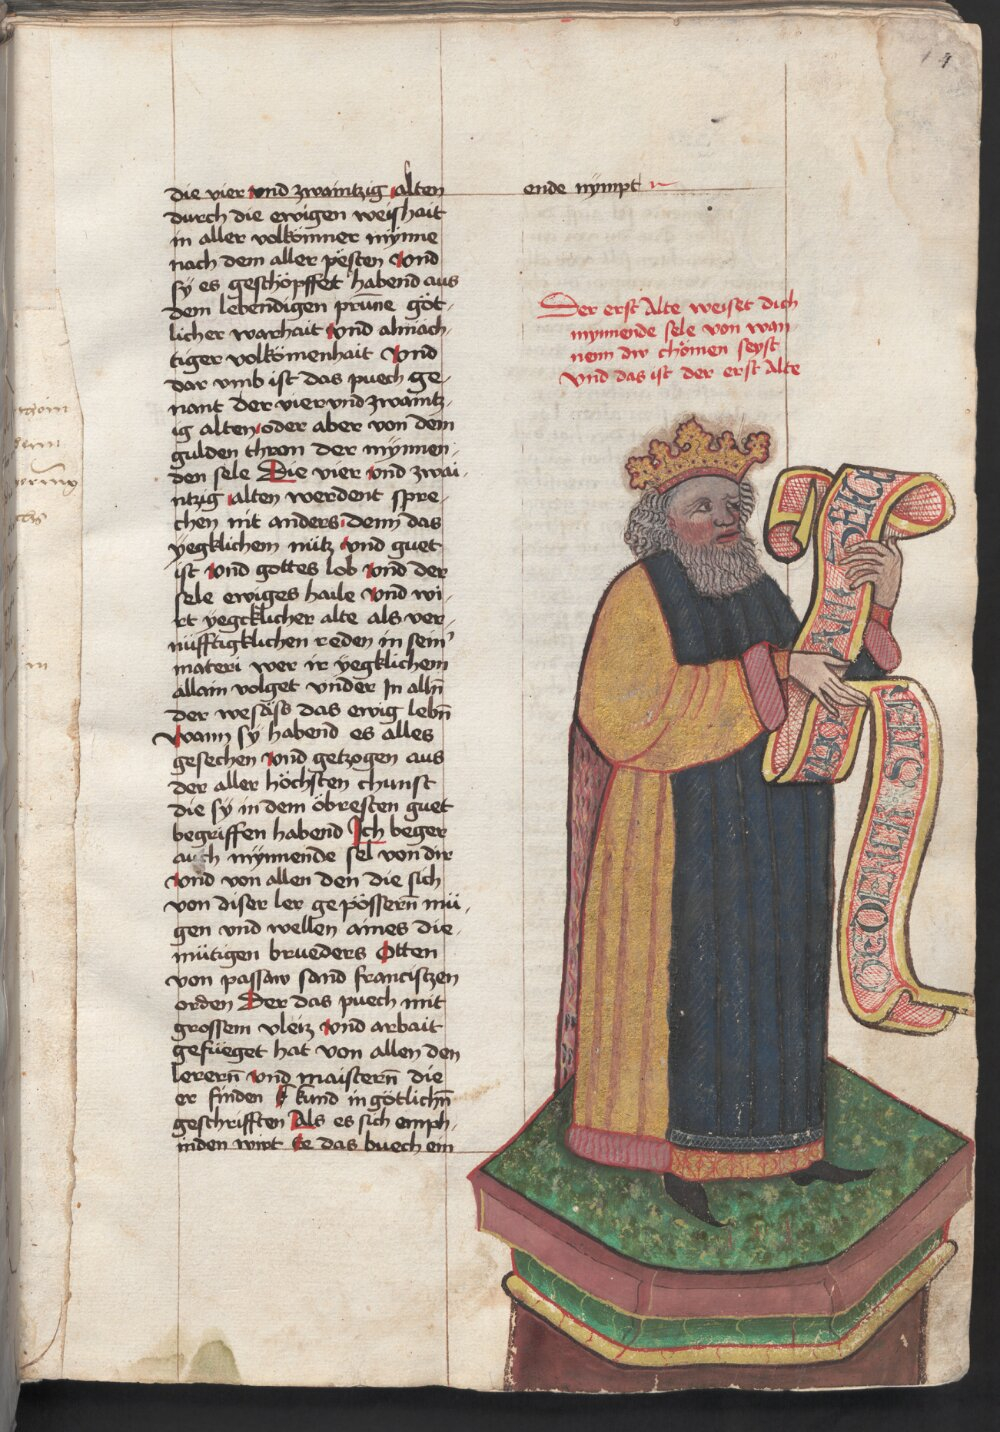 die vier vnd zwaintzig alten
durch die ewigen weishait
in aller volkömner mÿnne
nach dem aller pësten vnd
sÿ es geschöpffet habend aus
dem lebendigen prūne göt-
licher warhait vnd almäch-
tiger volkömenhait vnd
dar vmb ist das puech ge-
nant der vier vnd zwaintz-
ig alten oder aber von dem
gulden thron der mÿnnen-
den sele Die vier vnd zwai-
ntzig alten werdent spre-
chen nit anders denn das
ÿegklichem nütz vnd guet
ist vnd gottes lob vnd der
sele ewiges haile vnd wi-
rt ÿegcklicher alte als ver-
nüfftigklichen reden in sein
materi wer ir ÿegklichem
allain volget vnder In alln̄
der wesäss das ewig lebn̄
Wann sÿ habend es alles
gesechen vnd getzogen aus
der aller höchsten chunst
die sÿ in dem öbresten guet
begriffen habend Ich beger
auch mÿnnende sel von dir
vnd von allen den die sich
von diser ler ge pössern̄ mü-
gen vnd wellen aines die-
mütigen brueders Otten
von passaw sand franciszen
orden Der das puech mit
grossem vleiz vnd arbait
gefüeget hat von allen den
lerern̄ vnd maistern̄ die
er finden kund in götlichn̄
geschrifften Als es sich emph-
inden wirt Ee das buech ein
ende nÿmpt
Der erst Alte weiset dich
mÿnnende sele von wan
nenn dw chömen seyst
vnd das ist der erst Alte